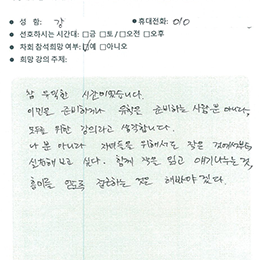 ● 성 함: 강 ● 휴대전화: 010
● 선호하시는 시간대: □금 □토 / □오전 □오후
● 차회 참석희망 여부: ☑예 □아니오
● 희망 강의 주제:
참 유익한 시간이었습니다.
이민을 준비하거나 유학을 준비하는 사람 뿐 아니라,
모두를 위한 강의라고 생각합니다.
나 뿐 아니라 자녀들을 위해서도 작은 것에서부터
실천해 보고 싶다. 함께 책을 읽고 얘기나누는 것,
흥미를 갖도록 질문하는 것을 해봐야겠다.